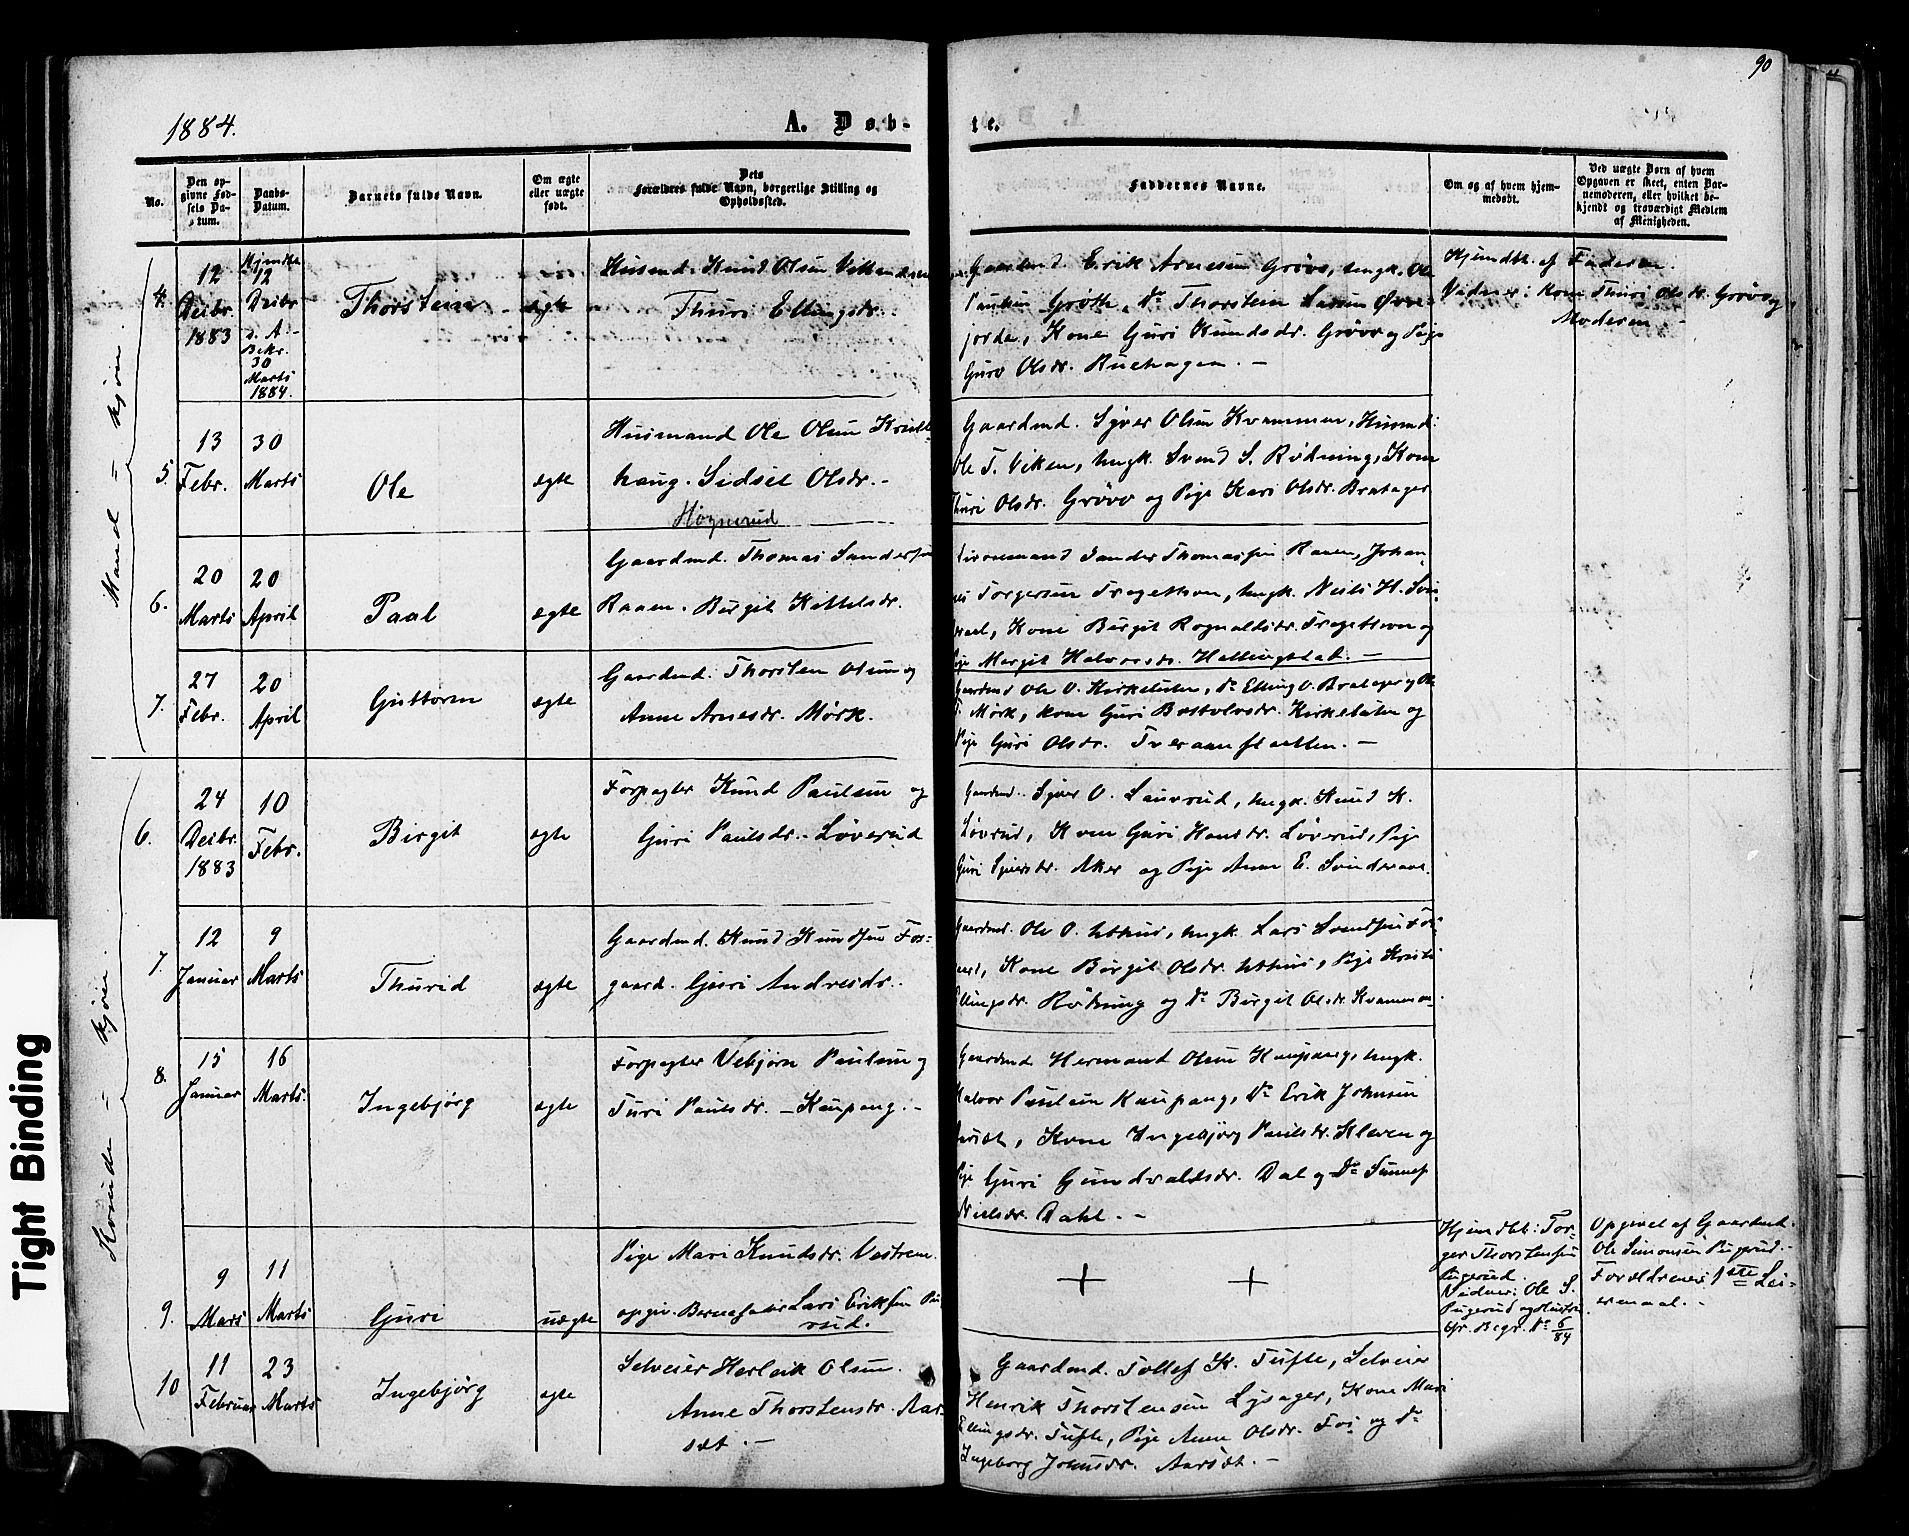 90
1884.
A. Døb-
te.
No.
Den op-
givne Fød-
sels Da-
tum.
Daabs-
Datum.
Barnets fulde Navn.
Om ægte
eller uægte
født.
Dets
Forældres fulde Navn, borgerlige Stilling og
Opholdssted.
Faddernes Navne.
Om og af hvem hjem-
medøbt.
Ved uægte Børn af hvem
Opgaven er skeet, enten Bar-
nemoderen, eller hvilket be-
kjendt og troværdigt Medlem
af Menigheden.
Mand - kjøn.
4.
12
Decbr.
1883
Hjemdbt.
12
Decbr
s. A.
Bekr.
30
Marts
1884.
Thorstein
ægte
Husmd. Knud Olsen
Thuri Ellingsdr.
Gaardmd. Erik Arnesen Grøvo, Ungk. Ole
Paulsen Grøth, Do Thorstein Larsen Øvre-
jorde, Kone Guri Knudsdr. Grøvo og Pige
Guro Olsdr. Ruehagen. -
Hjemdbt. af Faderen.
Vidner: Kone Thuri Olsdr. Grøvo og
Moderen -
5.
13
Febr.
30
Marts
Ole
ægte
Husmand Ole Olsen
haug. Sidsel Olsdr. -
Høgnerud
Gaardmd. Syver Olsen Kvammen, Husmd:
Ole T. Viken, Ungk. Svend S. Rødning, Kone
Thuri Olsdr. Grøvo og Pige Kari Olsdr. Bratager
6.
20
Marts
20
April
Paal
ægte
Gaardmd. Thomas Sandersen
Raaen. Birgit Kittelsdr.
Sander Thomassen Raaen, Johan-
nes Torgersen Tragethon, Ungk. Neils H.
Kone Birgit Rognaldsdr. Tragethon og
Pige Margit Halvorsdr. Hallingstad. -
7.
27
Febr.
20
April
Guttorm
ægte
Gaardmd. Thorsten Olsen og
Anne Arnesdr. Mørk.
Gaardmd Ole O. Kirkeluten, Do Elling O. Bratager og Ole
T. Mørk, Kone Guri Bottolvsdr. Kirkeluten og
Pige Guri Olsdr. Tveraanslaatten. -
Kvinde - kjøn.
6.
24
Decbr.
1883
10
Febr.
Birgit
ægte
Forpagter Knud Paulsen og
Guri Paulsdr. - Løverud
Gaardmd. Syver O. Laurud, Ungk. Knud K.
Løvrud, Kone Guri Hansdr. Løverud, Pige
Guri Syversdr. Aker og Pige Anne E.
7.
12
Januar
9
Marts
Thurid
ægte
Gaardmd. Knud Knudsen Fos-
gaard. Guri Andresdr.
Gaardmd. Ole O. Uthus, Ungk. Lars Svendsen
Kone Birgit Olsdr. Uthus, Pige Kristi
Ellingsdr. Rødning og Do Birgit Olsdr. Kvammen.
8.
15
Januar
16
Marts.
Ingebjørg
ægte
Forpagter Vebjørn Paulsen og
Turi Paulsdr. - Kaupang. -
Gaardmd Hermand Olsen Kaupang, Ungk.
Halvor Paulsen Kaupang, Do Erik Johnsen
Aarset, Kone Ingebjørg Paulsdr. Kleven og
Pige Guri Gundvaldsdr. Dal og Do
Nielsdr. Dahl. -
9.
9
Mars
11
Marts
Guri
uægte
Pige Mari Knudsdr. Vestrem.
opgiv. Barnefader Lars Eriksen Pu-
rud.
+ +
Hjemdbt: Tor-
ger Thorstensen
Pugerud.
Vidner: Ole S.
Pugerud og Hustru
Gr. Begr. No 6/84
Opgivet af Gaardmd.
Ole Simonsen Pugerud. -
Forældrenes 1ste Lei-
ermaal. -
10
11
Februar
23
Marts
Ingebjørg
ægte
Selveier Herleik Olsen.
Anne Thorstensdr. Aar-
set. -
Gaardmd. Tollef K. Tufte, Selveier
Henrik Thorstensen Lysager, Kone Mari
Ellingsdr. Tufte, Pige Anne Olsdr. Fos og Do
Ingeborg Johnsdr. Aarset. -
Tight Binding